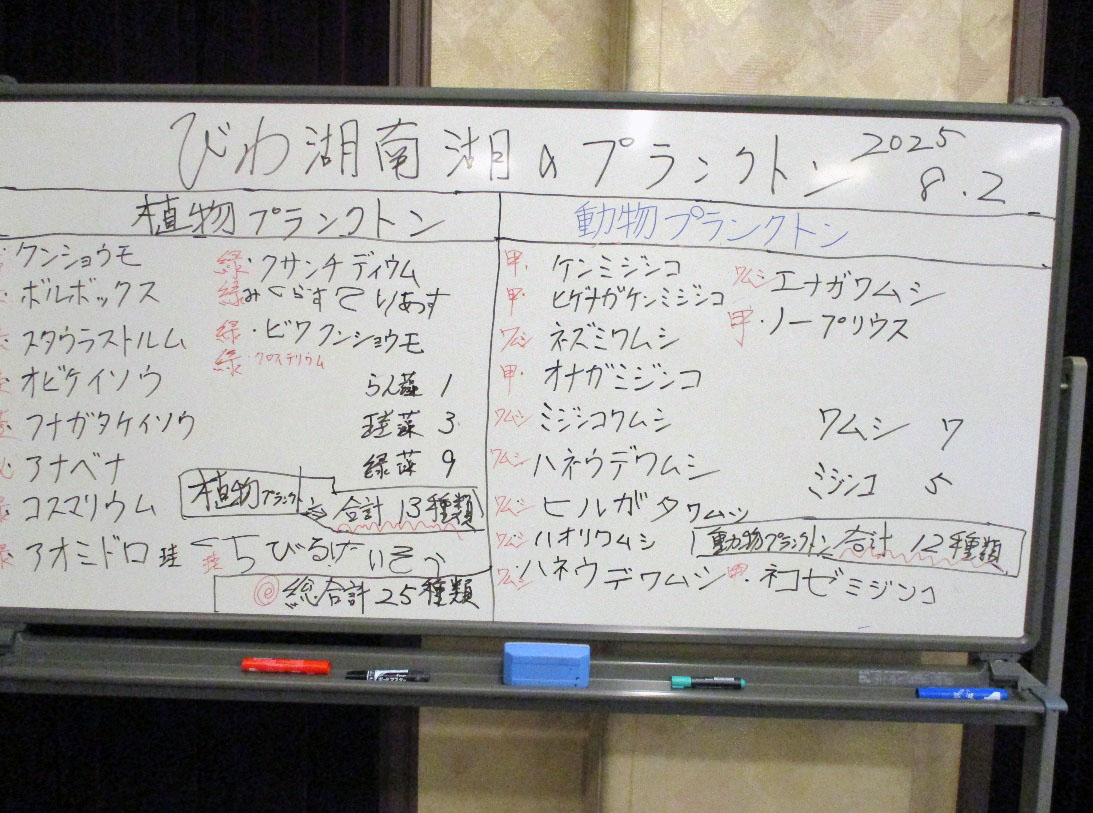 びわ湖南湖のプランクトン 2025 8.2
植物プランクトン
クンショウモ
ボルボックス
スタウラストルム
オビケイソウ
フナガタケイソウ
アナベナ
コスマリウム
アオミドロ
緑・クサンチディウム
緑みくらすてりあす
緑・ビワクンショウモ
緑・クロステリウム
らん藻 1
珪藻 3
緑藻 9
植物プランクトン⇒合計 13種類
珪 くちびるけいそう
◎総合計 25種類
動物プランクトン
甲・ケンミジンコ
甲・ヒゲナガケンミジンコ
ワムシ ネズミワムシ
甲・オナガミジンコ
ワムシ ミジンコワムシ
ワムシ ハネウデワムシ
ワムシ ヒルガタワムシ
ワムシ ハオリワムシ
ワムシ ハネウデワムシ
ワムシ エナガワムシ
甲・ノープリウス
ワムシ 7
ミジンコ 5
動物プランクトン合計 12種類
甲・ネコゼミジンコ